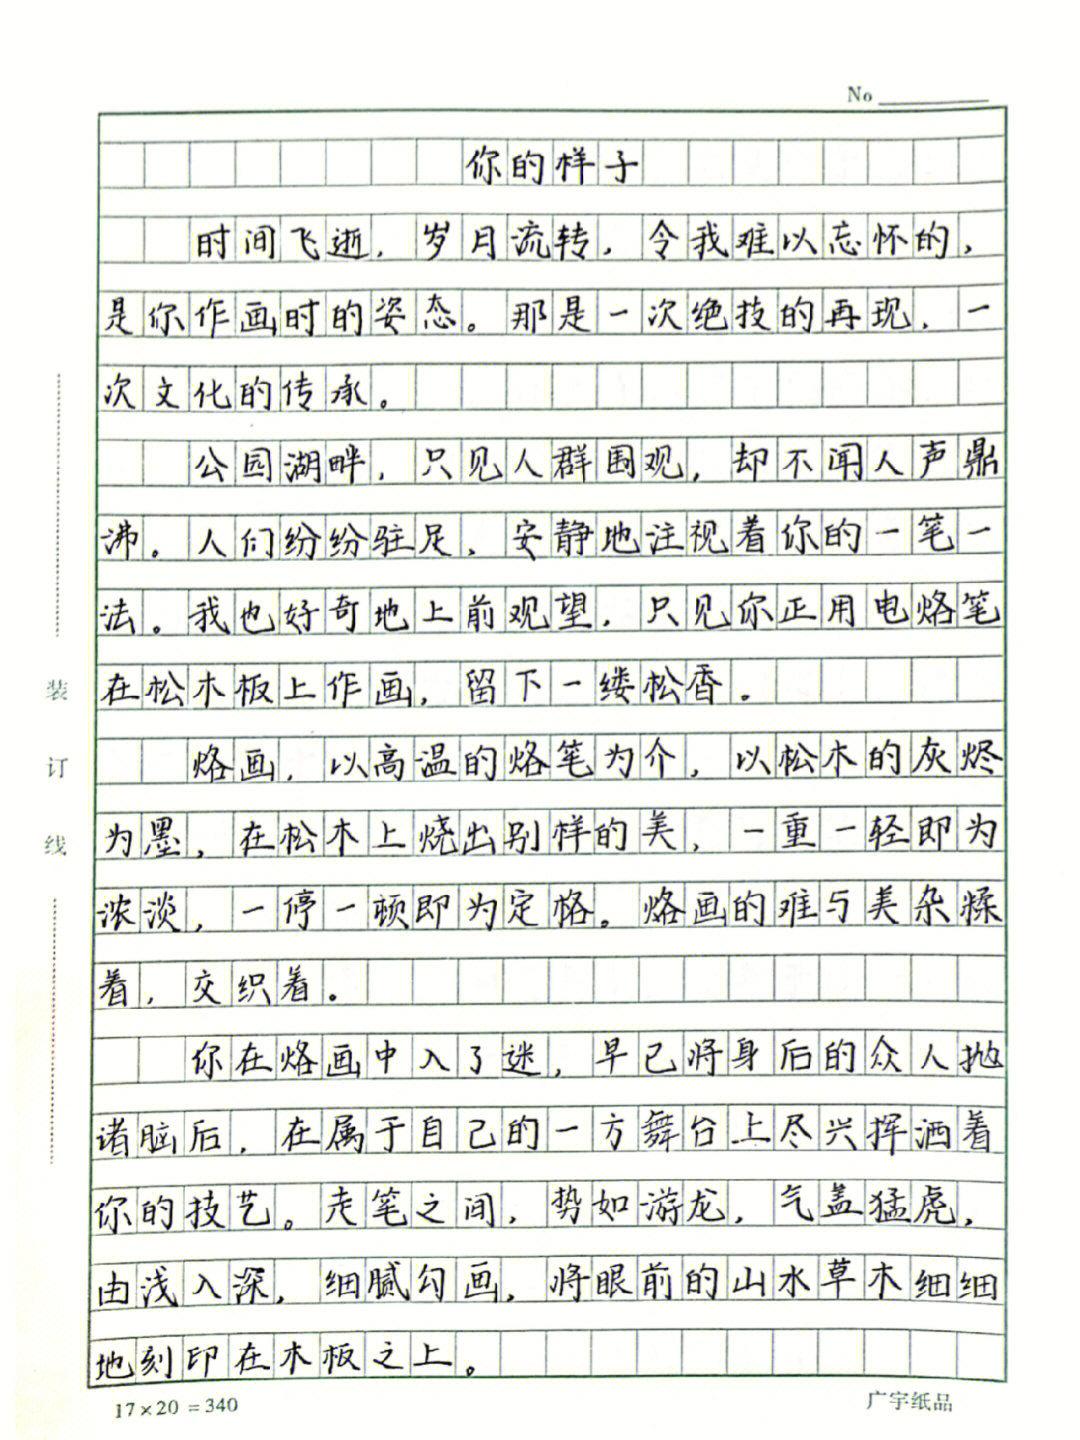 No
你的样子
时间飞逝，岁月流转，令我难以忘怀的，
是你作画时的姿态。那是一次绝技的再现，一
次文化的传承。
公园湖畔，只见人群围观，却不闻人声鼎
沸。人们纷纷驻足，安静地注视着你的一笔一
法。我也好奇地上前观望，只见你正用电烙笔
在松木板上作画，留下一缕松香。
烙画，以高温的烙笔为介，以松木的灰烬
为墨，在松木上烧出别样的美，一重一轻即为
浓淡，一停一顿即为定格。烙画的难与美杂糅
着，交织着。
你在烙画中入了迷，早已将身后的众人抛
诸脑后，在属于自己的一方舞台上尽兴挥洒着
你的技艺。走笔之间，势如游龙，气盖猛虎，
由浅入深，细腻勾画，将眼前的山水草木细细
地刻印在木板之上。
装订线
17×20=340
广宇纸品